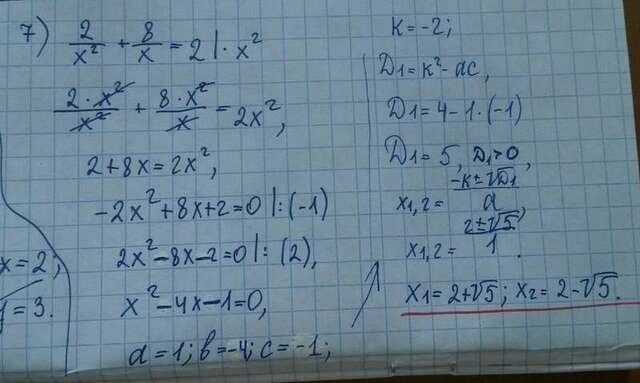 7) 2/x² + 8/x = 2 |· x²
2·x²/x² + 8·x²/x = 2x²,
2+8x=2x²,
-2x²+8x+2=0 |:(-1)
2x²-8x-2=0 |:(2),
x²-4x-1=0,
a=1; b=-4; c=-1;
x=2;
y=3.
K=-2;
D1=K²-ac,
D1=4-1·(-1)
D1=5, D1>0,
x1,2= -K±√D1/a,
x1,2= 2±√5/1.
x1=2+√5; x2=2-√5.